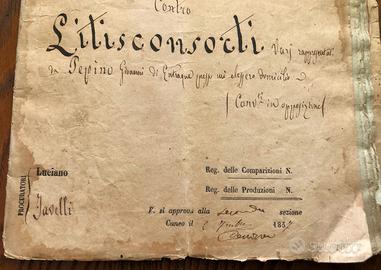 Contro
Litisconsorti Varj rappresentati
da Pepino Giovanni di Entraque presso cui elessero domicilio
(Conv.ti in opposizione)
PROCURATORI
Luciano
Javelli
Reg. delle Comparizioni N.
Reg. delle Produzioni N.
V. si approva alla seconda sezione
Cuneo il 185
subito